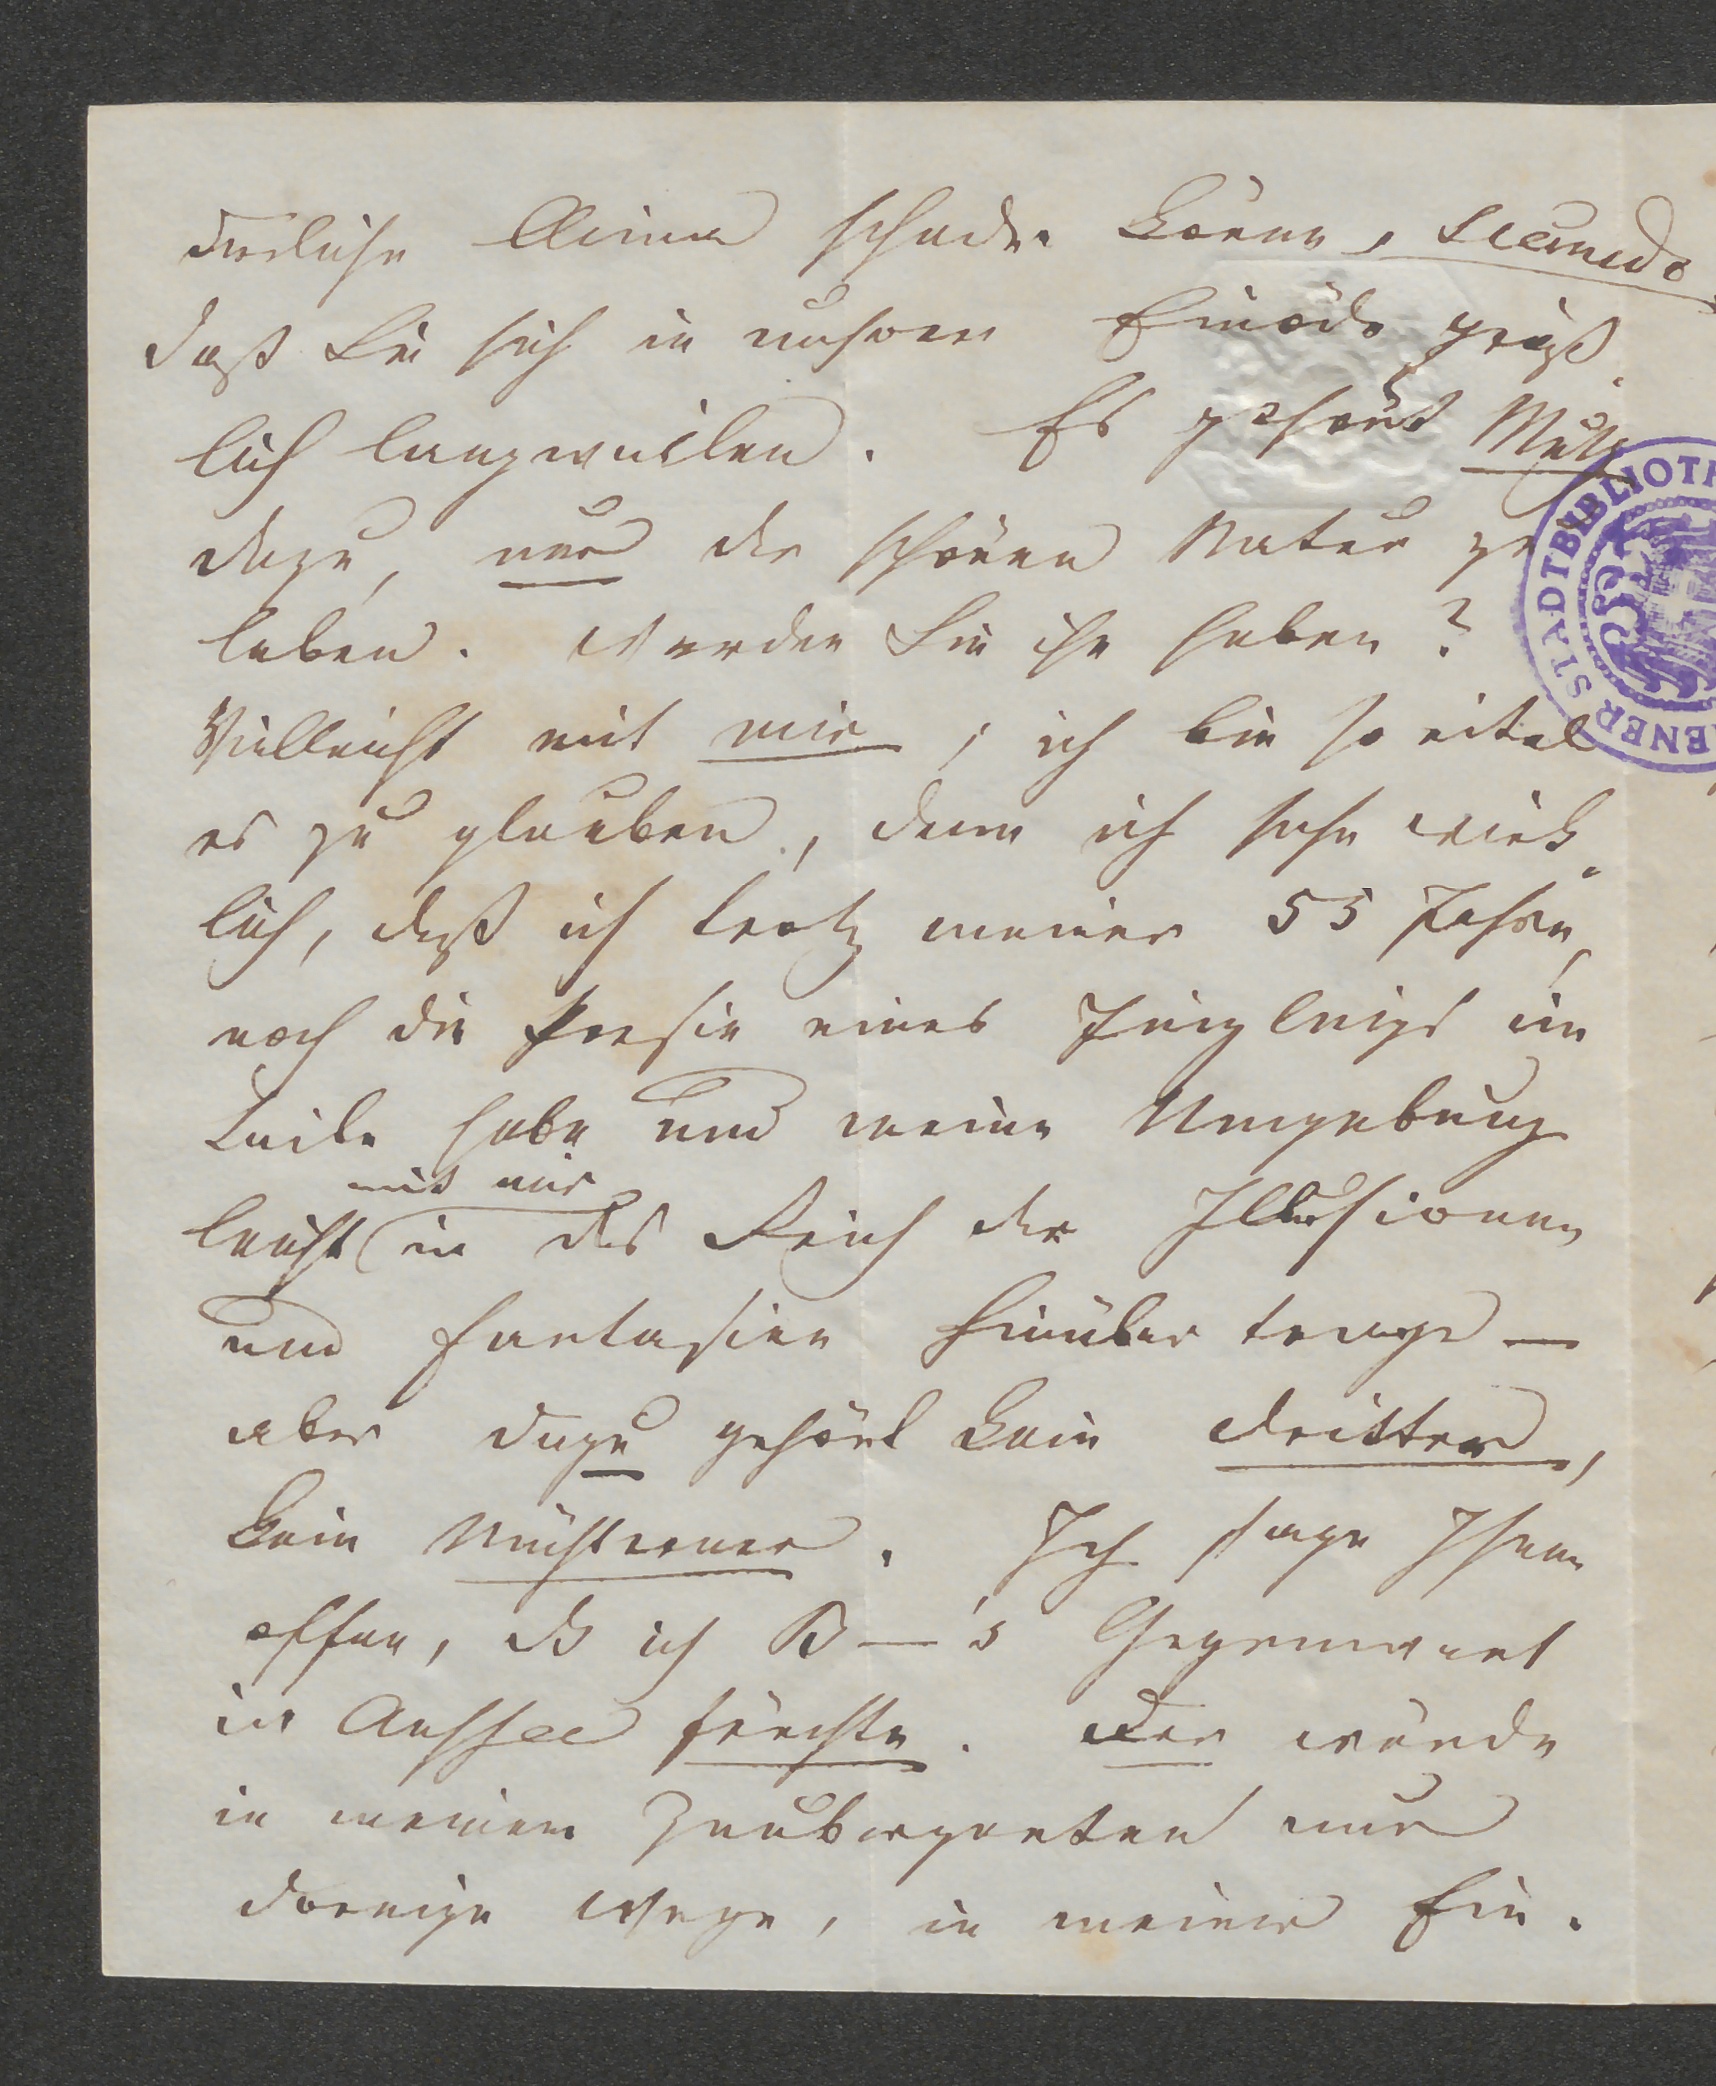 derliche Clima schaden könne, secundo
daß Sie sich in unserer Einöde gräß-
lich langweilen. Es gehört Muth
dazu, nur der schönen Natur zu
leben. Werden Sie ihn haben?
Vielleicht mit mir; ich bin so eitel
es zu glauben, denn ich sehe wirk-
lich, daß ich trotz meiner 55 Jahre,
noch die Poesie eines Jünglings im
Leibe habe und meine Umgebung
leicht mit mir in das Reich der Illusionen
und Fantasien hinüber trage –
aber dazu gehört kein Dritter,
kein Nüchterner. Ich sage Ihnen
offen, dß ich B–'s Gegenwart
in Aussee fürchte. Der würde
in meinem Zaubergarten nur
dornige Wege, in meiner Ein-
WIENER STADTBIBLIOTH